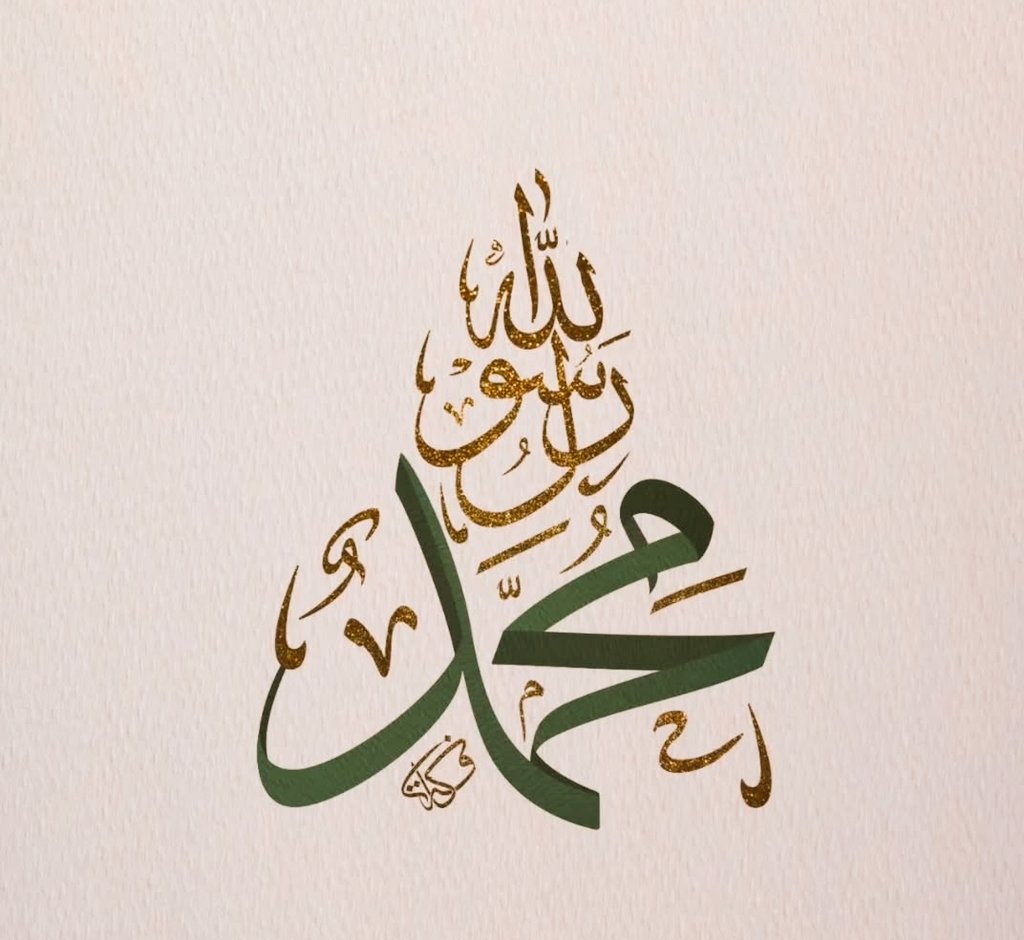 مُحَمَّدٌ
رَسُوْلُ
اللّٰهِ